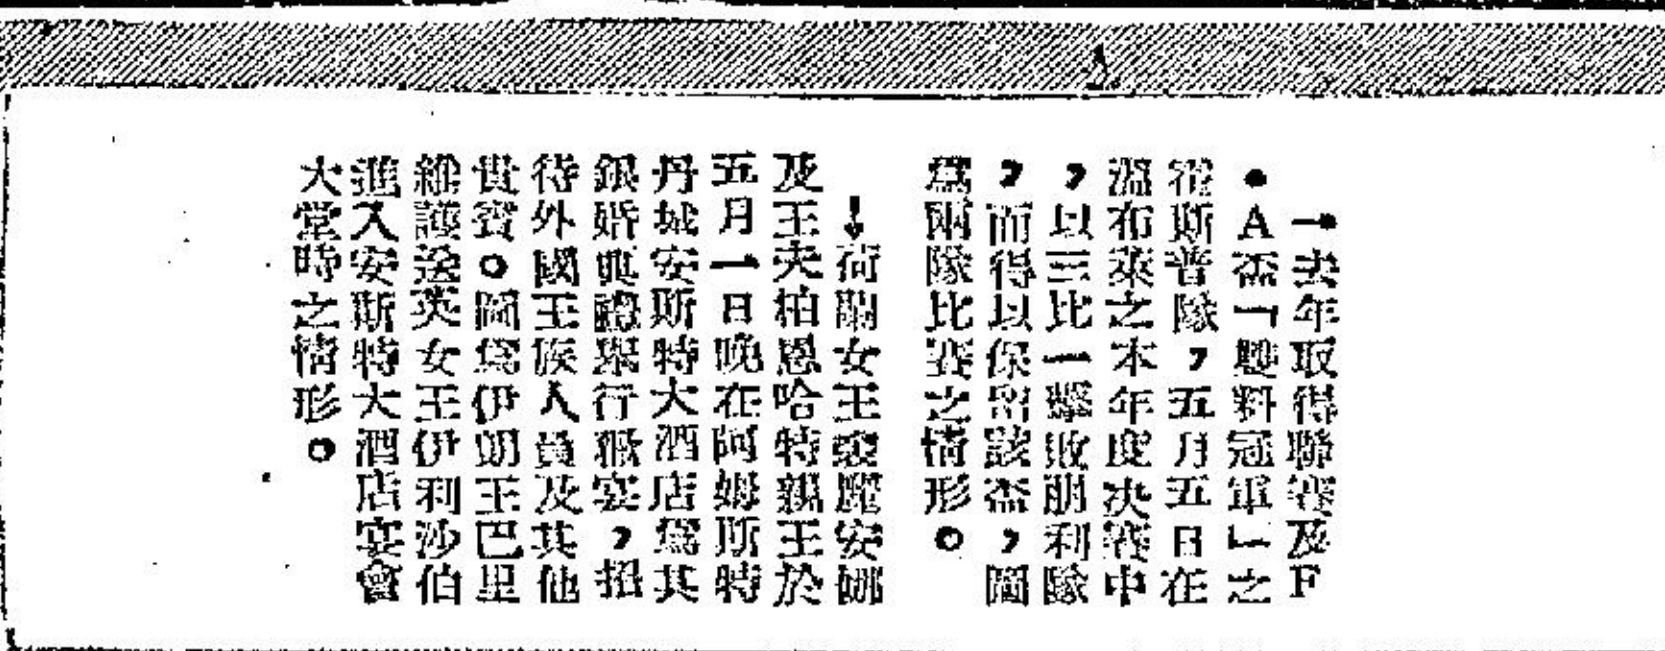 →去年取得聯賽及F
•A盃「雙料冠軍」之
霍斯普隊，五月五日在
溫布萊之本年度決賽中
，以三比一擊敗朋利隊
，而得以保留該盃，圖
爲兩隊比賽之情形。
↓荷蘭女王裘麗安娜
及王夫柏恩哈特親王於
五月一日晚在阿姆斯特
丹城安斯特大酒店爲其
銀婚典禮舉行盛宴，招
待外國王族人員及其他
貴賓。圖爲伊朗王巴里
維護送英女王伊利沙伯
進入安斯特大酒店宴會
大堂時之情形。